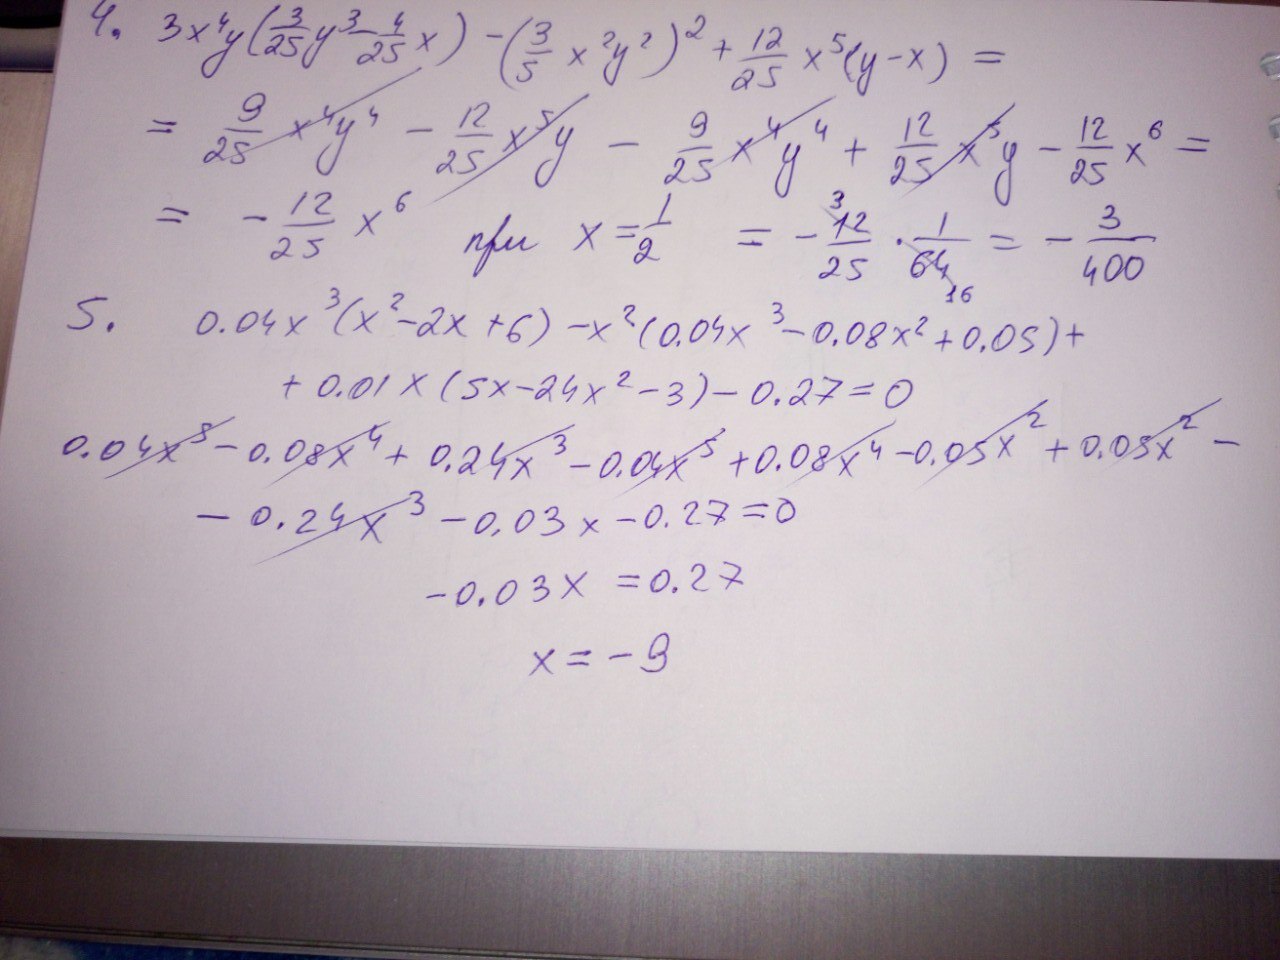 4. 3x⁴y(3/25 y³ - 4/25 x) - (3/5 x²y²)² + 12/25 x⁵(y-x) =
= 9/25 x⁴y⁴ - 12/25 x⁵y - 9/25 x⁴y⁴ + 12/25 x⁵y - 12/25 x⁶ =
= - 12/25 x⁶ при x = 1/2 = - 12/25 3 · 1/64 16 = - 3/400
5. 0.04x³(x²-2x+6) - x²(0.04x³ - 0.08x² + 0.05) +
+ 0.01x(5x - 24x² - 3) - 0.27 = 0
0.04x⁵ - 0.08x⁴ + 0.24x³ - 0.04x⁵ + 0.08x⁴ - 0.05x² + 0.05x² -
- 0.24x³ - 0.03x - 0.27 = 0
-0.03x = 0.27
x = -9